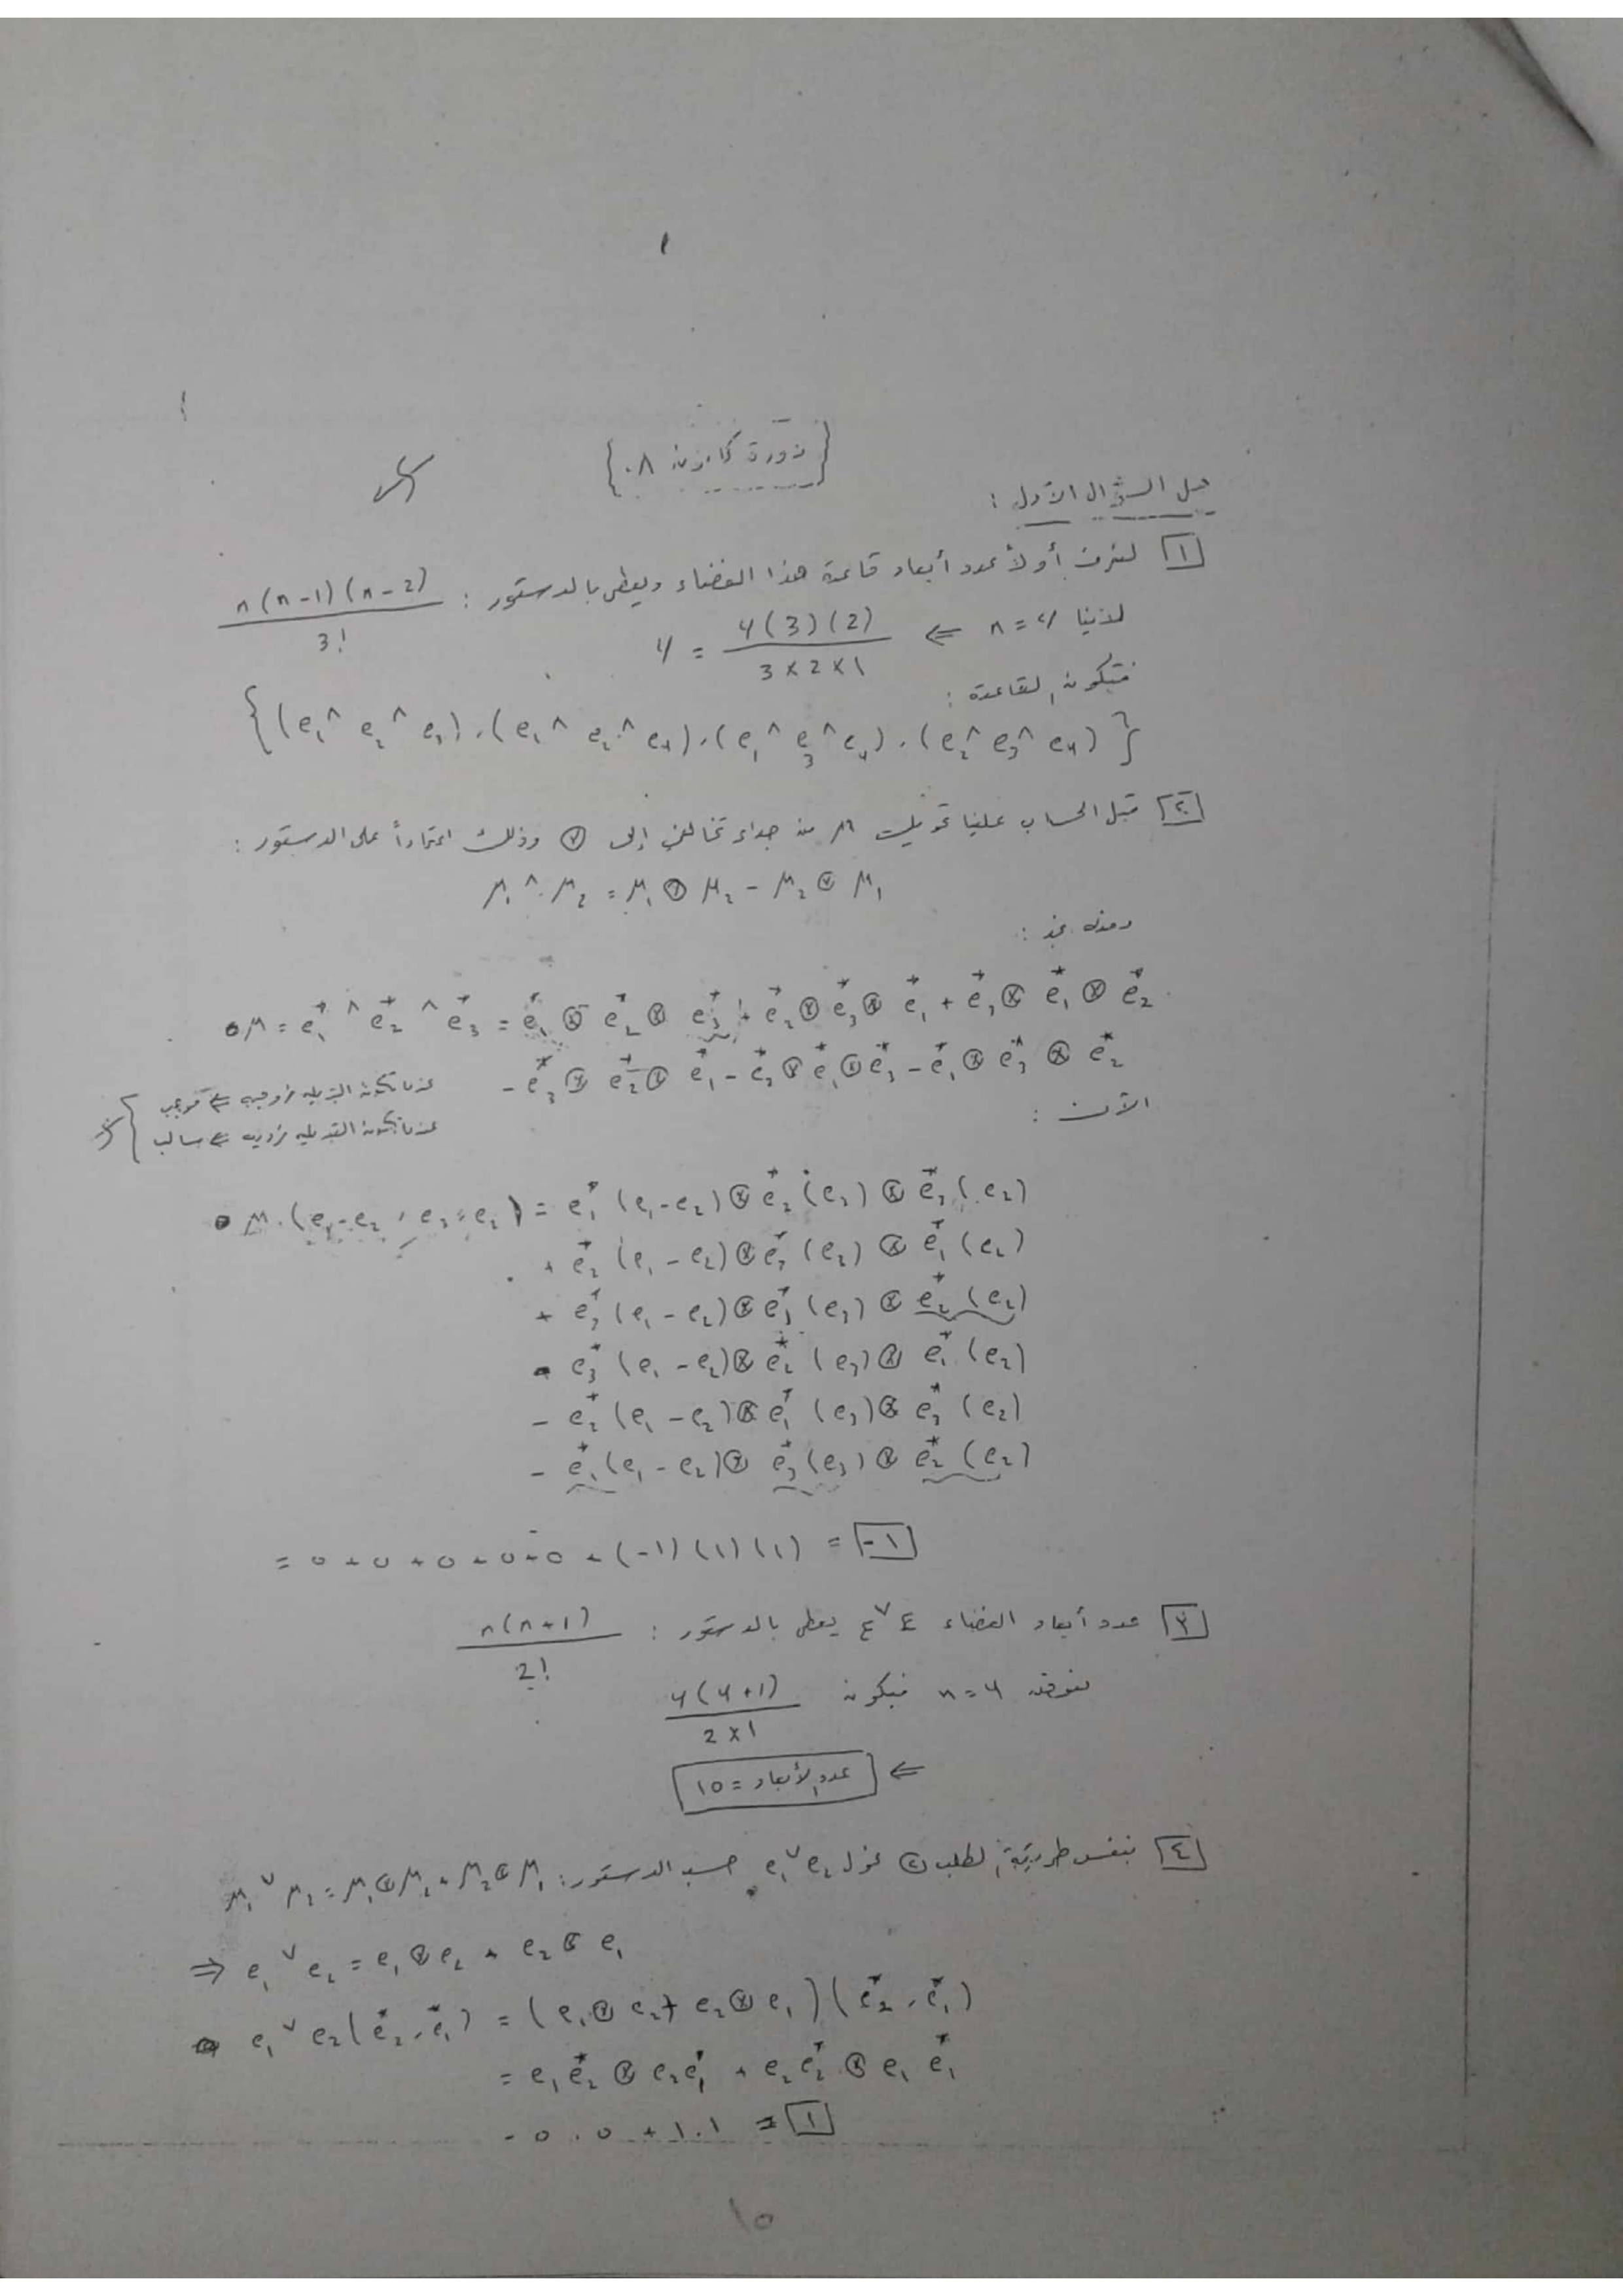 {دورة كانون ٠٨}
حل السؤال الأول :
[١] لنعرف أولاً عدد أبعاد قاعدة هذا الفضاء ويعطى بالدستور : n(n-1)(n-2) / 3!
لدينا n = 4 ⇐ 4(3)(2) / 3×2×1 = 4
فتكون القاعدة :
{(e₁ ^ e₂ ^ e₃) , (e₁ ^ e₂ ^ e₄) , (e₁ ^ e₃ ^ e₄) , (e₂ ^ e₃ ^ e₄)}
[٢] قبل الحساب علينا تحويل μ من جداء تخالفي إلى ⊗ وذلك اعتماداً على الدستور :
μ₁ ^ μ₂ = μ₁ ⊗ μ₂ - μ₂ ⊗ μ₁
ومنه نجد :
• μ = e₁* ^ e₂* ^ e₃* = e₁* ⊗ e₂* ⊗ e₃* + e₂* ⊗ e₃* ⊗ e₁* + e₃* ⊗ e₁* ⊗ e₂*
- e₃* ⊗ e₂* ⊗ e₁* - e₂* ⊗ e₁* ⊗ e₃* - e₁* ⊗ e₃* ⊗ e₂*
عندما تكون التبديلة زوجية ⇐ موجب
عندما تكون التبديلة فردية ⇐ سالب
الآن :
• μ(e₁-e₂ , e₃ , e₂) = e₁*(e₁-e₂) ⊗ e₂*(e₃) ⊗ e₃*(e₂)
+ e₂*(e₁-e₂) ⊗ e₃*(e₃) ⊗ e₁*(e₂)
+ e₃*(e₁-e₂) ⊗ e₁*(e₃) ⊗ e₂*(e₂)
- e₃*(e₁-e₂) ⊗ e₂*(e₃) ⊗ e₁*(e₂)
- e₂*(e₁-e₂) ⊗ e₁*(e₃) ⊗ e₃*(e₂)
- e₁*(e₁-e₂) ⊗ e₃*(e₃) ⊗ e₂*(e₂)
= 0 + 0 + 0 + 0 + 0 + (-1)(1)(1) = [-1]
[٣] عدد أبعاد الفضاء E ˅ E يعطى بالدستور : n(n+1) / 2!
نعوض n = 4 فيكون 4(4+1) / 2×1
⇐ عدد الأبعاد = 10
[٤] بنفس طريقة الطلب ② نحول e₁ ˅ e₂ حسب الدستور : μ₁ ˅ μ₂ = μ₁ ⊗ μ₂ + μ₂ ⊗ μ₁
⇒ e₁ ˅ e₂ = e₁ ⊗ e₂ + e₂ ⊗ e₁
• e₁ ˅ e₂(e₂* , e₁*) = (e₁ ⊗ e₂ + e₂ ⊗ e₁)(e₂* , e₁*)
= e₁e₂* ⊗ e₂e₁* + e₂e₂* ⊗ e₁e₁*
= 0 . 0 + 1 . 1 = [1]
١٥